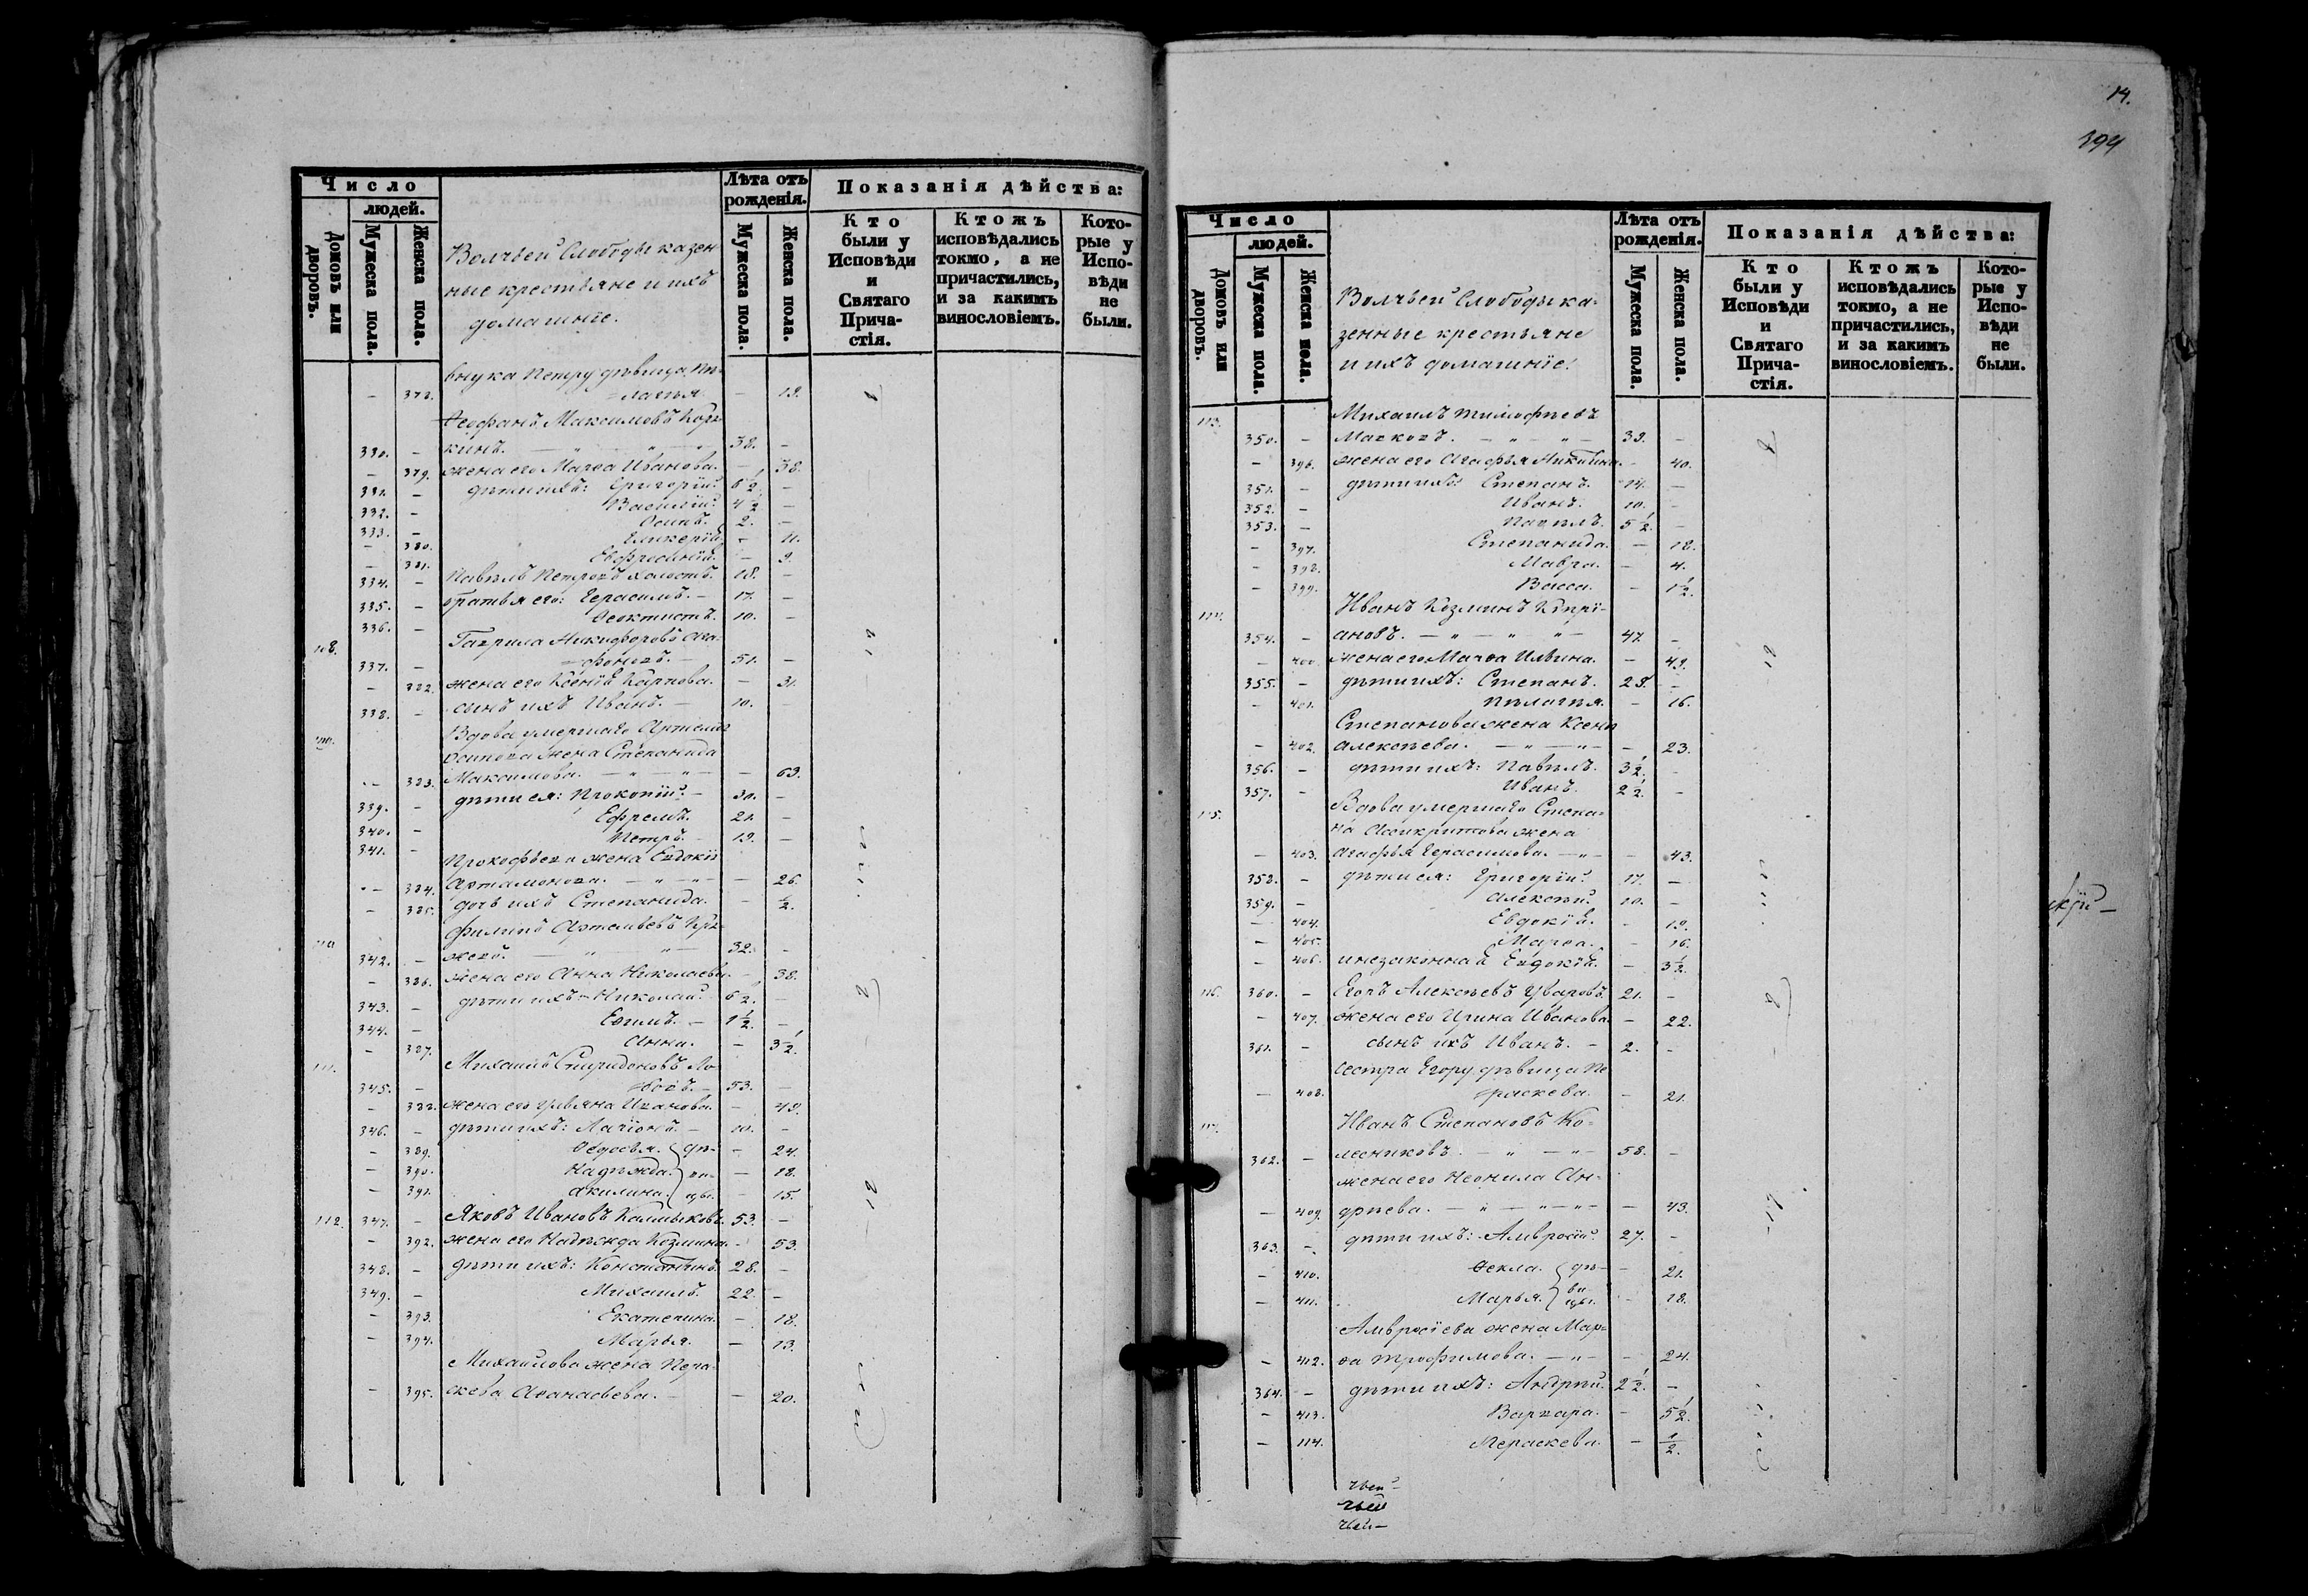 Число
людей.
Домовъ или дворовъ.
Мужеска пола.
Женска пола.
Волчьей Слободы казен-
ные крестьяне и ихъ
домашніе.
Лѣта отъ рожденія.
Мужеска пола.
Женска пола.
Показанія дѣйства:
Кто были у Исповѣди и Святаго Прича-стія.
Ктожъ исповѣдались токмо, а не причастились, и за какимъ винословіемъ.
Кото-рые у Испо-вѣди не были.
внука Петру дѣвица Пе-
378. лагѣя. 19.
Ѳеофанъ Максимовъ
330. кинъ. 38.
379. жена его Марѳа Иванова. 38.
331. дѣти ихъ: Григорій. 6 1/2
332. Василій. 4 1/2
333. Осипъ. 2.
380. Гликерія. 11.
381. Евфросинія. 9.
334. Павелъ Петровъ холостъ. 18.
335. братья его: Герасимъ. 17.
336. Ѳеоктистъ. 10.
108. Гаврила Никифоровъ Ага-
337. фоновъ. 51.
382. жена его Ксенія Карпова. 31.
338. сынъ ихъ Иванъ. 10.
109. Вдова умершаго Артемія
Осипова жена Степанида
383. Максимова. 63.
339. дѣти ея: Прокопій. 30.
340. Ефремъ. 21.
341. Петръ. 19.
Прокофьева жена Евдокія
384. Артамонова. 26.
385. дочь ихъ Степанида. 1/2.
110. Филипъ Артемьевъ
342. 32.
386. жена его Анна Николаева. 38.
343. дѣти ихъ: Николай. 6 1/2.
344. Ефимъ. 1 1/2.
387. Анна. 3 1/2.
111. Михаилъ Спиридоновъ
345. 53.
388. жена его Ульяна Иванова. 49.
346. дѣти ихъ: Ларіонъ. 10.
389. Ѳедосья. дѣ- 24.
390. Надежда. ви- 18.
391. Акилина. цы. 15.
112. 347. Яковъ Ивановъ Калмыковъ. 53.
392. жена его Надежда Козмина. 53.
348. дѣти ихъ: Константинъ. 28.
349. Михаилъ. 22.
393. Екатерина. 18.
394. Марья. 13.
Михайлова жена Пера-
395. скева Аѳанасьева. 20.
14.
394
Число
людей.
Домовъ или дворовъ.
Мужеска пола.
Женска пола.
Волчьей Слободы ка-
зенные крестьяне
и ихъ домашніе.
Лѣта отъ рожденія.
Мужеска пола.
Женска пола.
Показанія дѣйства:
Кто были у Исповѣди и Святаго Прича-стія.
Ктожъ исповѣдались токмо, а не причастились, и за какимъ винословіемъ.
Кото-рые у Испо-вѣди не были.
113. Михаилъ Тимофѣевъ
350. Марковъ. 39.
396. жена его Агафья Никитина. 40.
351. дѣти ихъ: Степанъ. 14.
352. Иванъ. 10.
353. Павелъ. 5 1/2.
397. Степанида. 18.
398. Мавра. 4.
399. Васса. 1 1/2.
114. Иванъ Козминъ Кипрі-
354. ановъ. 47.
400. жена его Марѳа Ильина. 49.
355. дѣти ихъ: Степанъ. 25.
401. Пелагея. 16.
Степанова жена Ксенія
402. Алексѣева. 23.
356. дѣти ихъ: Павелъ. 3 1/2.
357. Иванъ. 2 1/2.
115. Вдова умершаго Степа-
на Асикритова жена
403. Агафья Герасимова. 43.
358. дѣти ея: Григорій. 17.
359. Алексѣй. 10.
404. Евдокія. 19.
405. Марѳа. 16.
406. и незаконная Евдокія. 3 1/2.
116. 360. Егоръ Алексѣевъ Уваровъ. 21.
407. жена его Ирина Иванова. 22.
361. сынъ ихъ Иванъ. 2.
сестра Егору дѣвица Пе-
408. раскева. 21.
117. Иванъ Степановъ Ко-
362. лесниковъ. 58.
жена его Неонила Ан-
409. дрѣева. 43.
363. дѣти ихъ: Амвросій. 27.
410. Ѳекла. дѣ- 21.
411. Марья. ви- цы. 18.
Амвросіева жена Мар-
412. ѳа Трофимова. 24.
364. дѣти ихъ: Андрей. 2 1/2.
413. Варвара. 5 1/2.
114. Пераскева. 1/2.
чьей
чьей
чьей